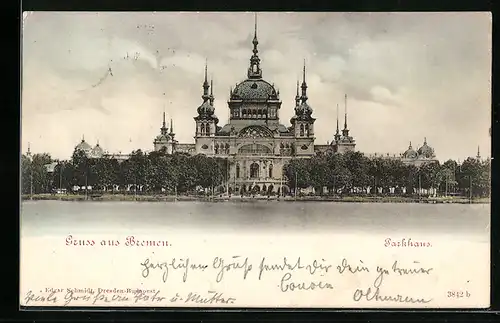 Gruss aus Bremen.
Parkhaus.
Herzlichen Gruß sendet Dir dein getreuer
Edgar Schmidt, Dresden-Budapest
viele Grüße an Vater u. Mutter
3842 b